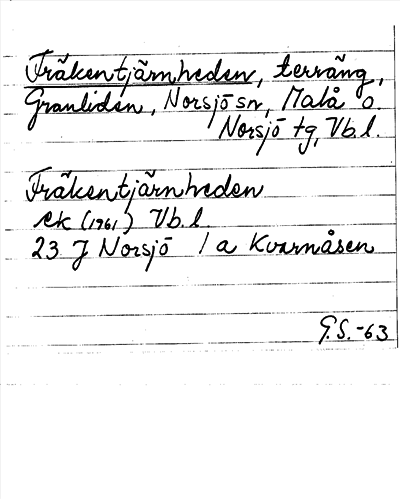 Fräkentjärnheden, terräng,
Granliden, Norsjö sn, Malå o.
Norsjö tg, Vb.l.
Fräkentjärnheden
ek (1961) Vb.l.
23 J Norsjö 1 a Kvarnåsen
G.S. -63